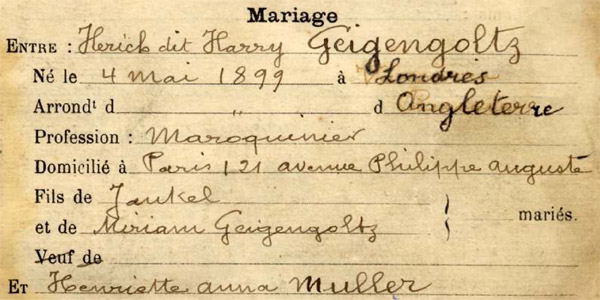 Mariage
ENTRE : Herich dit Harry Geigengoltz
Né le 4 Mai 1899 à Londres
Arrondt d " d Angleterre
Profession : Maroquinier
Domicilié à Paris 121 avenue Philippe auguste
Fils de Jankel
et de Miriam Geigengoltz } mariés.
Veuf de
ET Henriette anna Muller